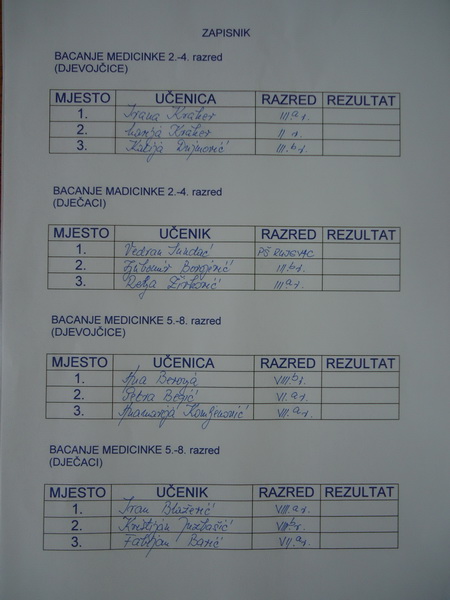 ZAPISNIK
BACANJE MEDICINKE 2.-4. razred
(DJEVOJČICE)
MJESTO UČENICA RAZRED REZULTAT
1. Ivana Kraher III.a r.
2. Marija Kraher II r.
3. Katija Dujmović III.b r.
BACANJE MADICINKE 2.-4. razred
(DJEČACI)
MJESTO UČENIK RAZRED REZULTAT
1. Vedran PŠ RUJEVAC
2. Ljubomir III.b r.
3. III a r.
BACANJE MEDICINKE 5.-8. razred
(DJEVOJČICE)
MJESTO UČENICA RAZRED REZULTAT
1. Ana Beronja VIII.b r.
2. Petra Begić VI.a r.
3. Anamarija Komljenović VII.a r.
BACANJE MEDICINKE 5.-8. razred
(DJEČACI)
MJESTO UČENIK RAZRED REZULTAT
1. Ivan Blažević VIII.a r.
2. Kristijan Juzbašić VIII.b r.
3. Fabijan Barić VII.a r.